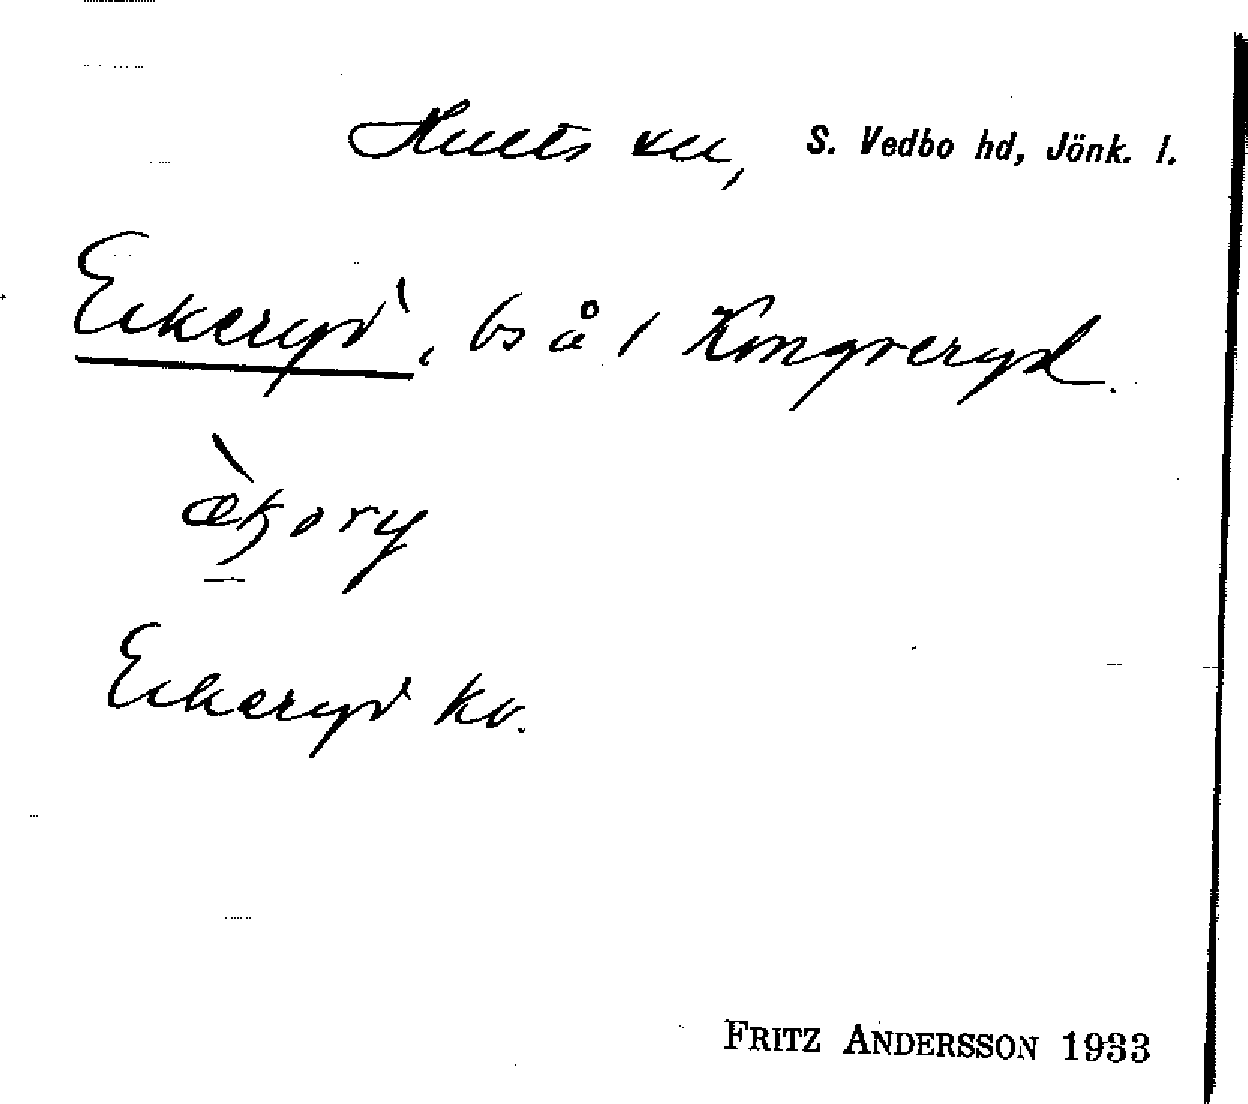 Hults sn, S. Vedbo hd, Jönk. l.
Eckeryd, bs å 1 Kongseryd.
Eckeryd kv.
FRITZ ANDERSSON 1933